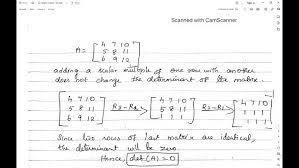 Scanned with CamScanner
A = [ 4 7 10
5 8 11
6 9 12 ]
adding a scalar multiple of one row with another
does not change the determinant of the matrix.
[ 4 7 10
5 8 11
6 9 12 ] R3-R2 > [ 4 7 10
5 8 11
1 1 1 ] R2-R1 > [ 4 7 10
1 1 1
1 1 1 ]
Since two rows of last matrix are identical,
the determinant will be zero
Hence, det(A) = 0